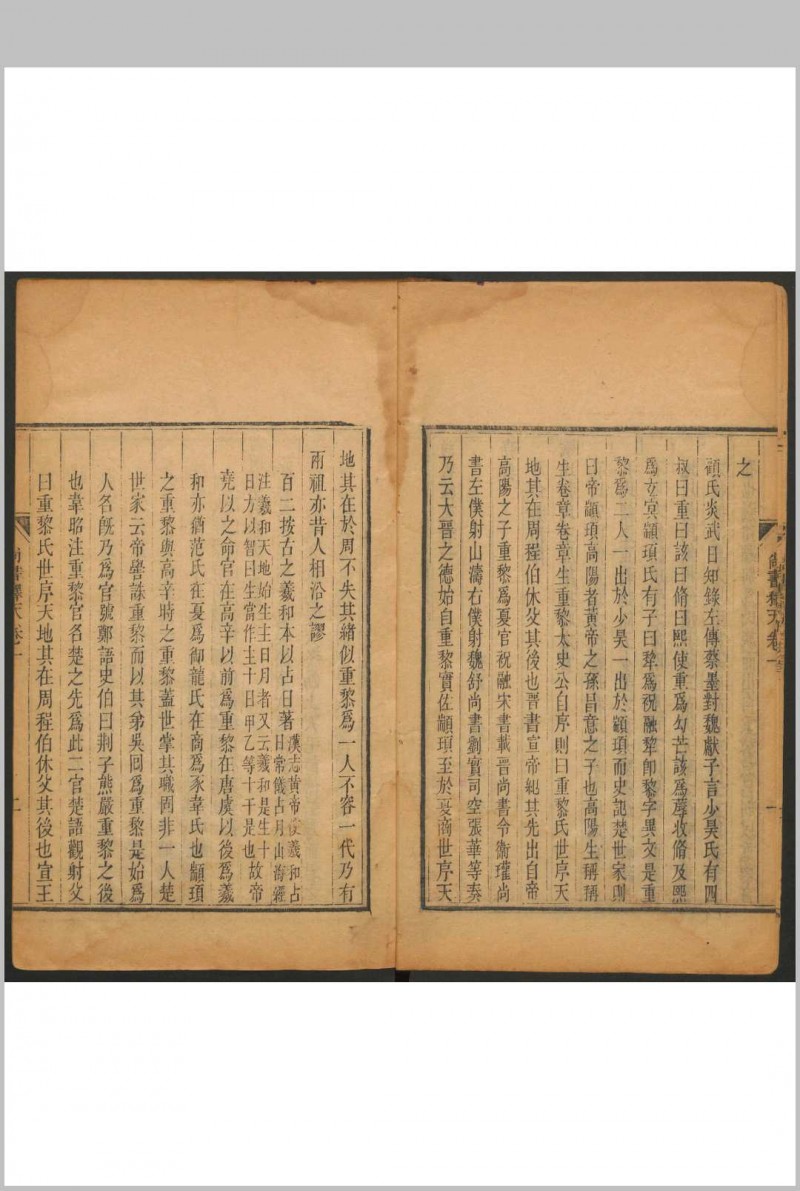 之
顧氏炎武日知錄左傳蔡墨對魏獻子言少昊氏有四
叔曰重曰該曰脩曰熙使重爲勾芒該爲蓐收脩及熙
爲玄冥顓頊氏有子曰犂爲祝融犂卽黎字異文是重
黎爲二人一出於少昊一出於顓頊而史記楚世家則
曰帝顓頊高陽者黃帝之孫昌意之子也高陽生稱稱
生卷章卷章生重黎太史公自序則曰重黎氏世序天
地其在周程伯休父其後也晉書宣帝紀其先出自帝
高陽之子重黎爲夏官祝融宋書載晉尚書令衞瓘尚
書左僕射山濤右僕射魏舒尚書劉寔司空張華等奏
乃云大晉之德始自重黎實佐顓頊至於夏商世序天
地其在於周不失其緒似重黎爲一人不容一代乃有
兩祖亦昔人相沿之謬
百二按古之羲和本以占日著漢志黃帝使羲和占
日常儀占月山海經
注羲和天地始生主日月者又云羲和是生十
日方以智曰生當作主十日甲乙等十干是也故帝
堯以之命官在高辛以前爲重黎在唐虞以後爲羲
和亦猶范氏在夏爲御龍氏在商爲豕韋氏也顓頊
之重黎與高辛時之重黎蓋世掌其職固非一人楚
世家云帝嚳誅重黎而以其弟吳回爲重黎是始爲
人名旣乃爲官號鄭語史伯曰荆子熊嚴重黎之後
也韋昭注重黎官名楚之先爲此二官楚語觀射父
曰重黎氏世序天地其在周程伯休父其後也宣王
尚書釋天卷一
二